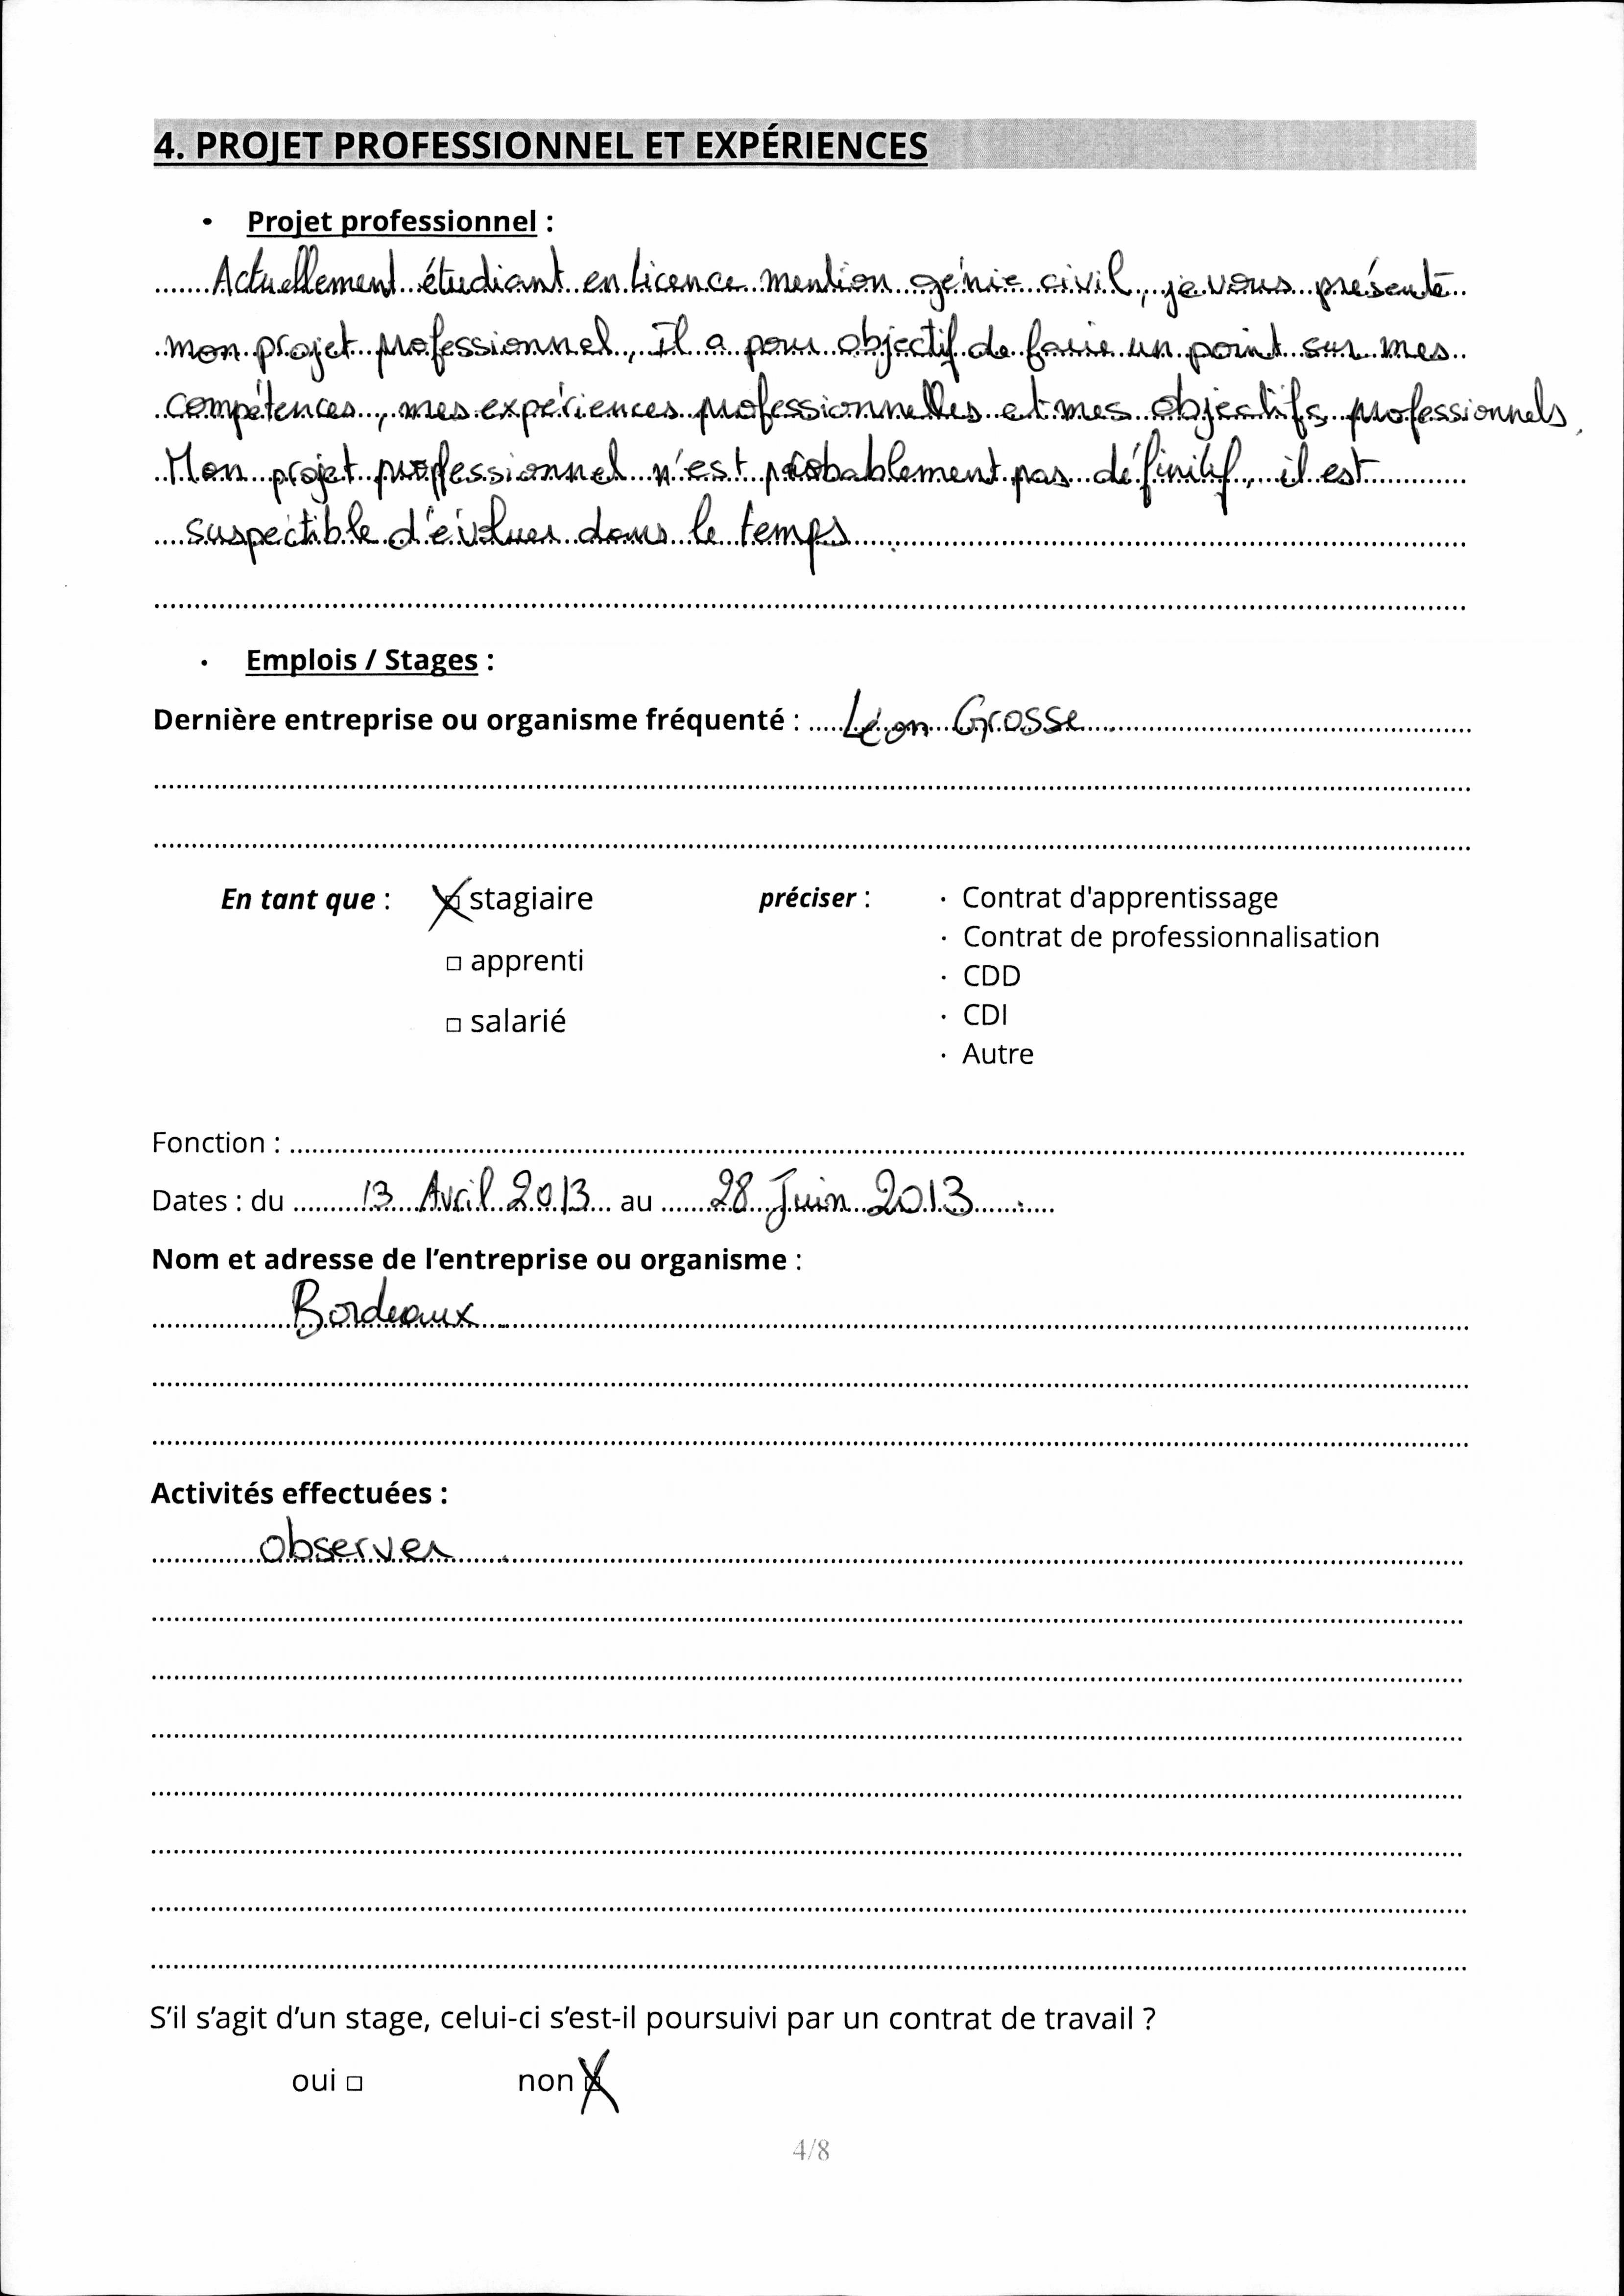 4. PROJET PROFESSIONNEL ET EXPÉRIENCES
• Projet professionnel :
Actuellement étudiant en licence mention génie civil, je vous présente
mon projet professionnel, Il a pour objectif de faire un point sur mes
compétences, mes expériences professionnelles et mes objectifs professionnels,
Mon projet professionnel n'est probablement pas définitif, il est
suspectible d'évoluer dans le temps.
• Emplois / Stages :
Dernière entreprise ou organisme fréquenté : Léon Grosse
En tant que : ☒ stagiaire préciser : · Contrat d'apprentissage
· Contrat de professionnalisation
□ apprenti · CDD
□ salarié · CDI
· Autre
Fonction :
Dates : du 13 Avril 2013 au 28 Juin 2013
Nom et adresse de l'entreprise ou organisme :
Bordeaux
Activités effectuées :
observer
S'il s'agit d'un stage, celui-ci s'est-il poursuivi par un contrat de travail ?
oui □ non ☒
4/8